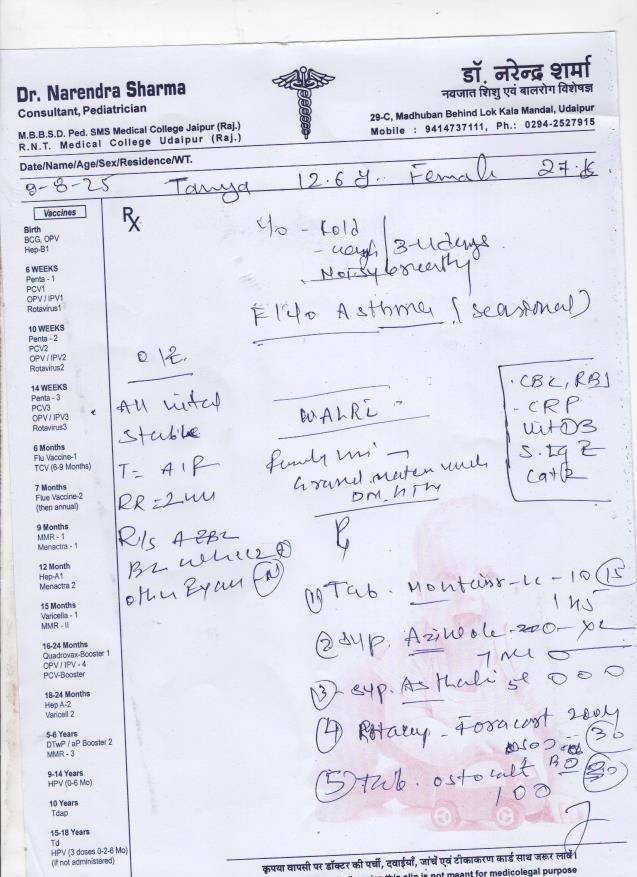 Dr. Narendra Sharma
Consultant, Pediatrician
M.B.B.S.D. Ped. SMS Medical College Jaipur (Raj.)
R.N.T. Medical College Udaipur (Raj.)
डॉ. नरेन्द्र शर्मा
नवजात शिशु एवं बालरोग विशेषज्ञ
29-C, Madhuban Behind Lok Kala Mandal, Udaipur
Mobile : 9414737111, Ph.: 0294-2527915
Date/Name/Age/Sex/Residence/WT.
9-8-25 Tanya 12.6 y. Female 27
Vaccines
Birth
BCG, OPV
Hep-B1
6 WEEKS
Penta - 1
PCV1
OPV / IPV1
Rotavirus1
10 WEEKS
Penta - 2
PCV2
OPV / IPV2
Rotavirus2
14 WEEKS
Penta - 3
PCV3
OPV / IPV3
Rotavirus3
6 Months
Flu Vaccine-1
TCV (6-9 Months)
7 Months
Flue Vaccine-2
(then annual)
9 Months
MMR - 1
Menactra - 1
12 Month
Hep-A1
Menactra 2
15 Months
Varicella - 1
MMR - II
16-24 Months
Quadrovax-Booster 1
OPV / IPV - 4
PCV-Booster
18-24 Months
Hep A-2
Varicell 2
5-6 Years
DTwP / aP Booster 2
MMR - 3
9-14 Years
HPV (0-6 Mo)
10 Years
Tdap
15-18 Years
Td
HPV (3 doses 0-2-6 Mo)
(if not administered)
Rx
- Cold
- cough 3-4 days
- Noisy breathy
Asthma (seasonal)
O/E
All vital
stable
T = AIF
RR =
R/s
other Exam
WALRI
DM, HTN
CBC, RBS
- CRP
Vit D3
S. Ig E
(1) Tab. Montair-LC - 10 (15)
(2) Syp.
(3) Syp. Asthalin
(4) Rotacap - Foracort 200 (30)
(5) Tab. Ostocalt
1 0 0
कृपया वापसी पर डॉक्टर की पर्ची, दवाईयाँ, जांचें एवं टीकाकरण कार्ड साथ जरूर लावें।
this slip is not meant for medicolegal purpose